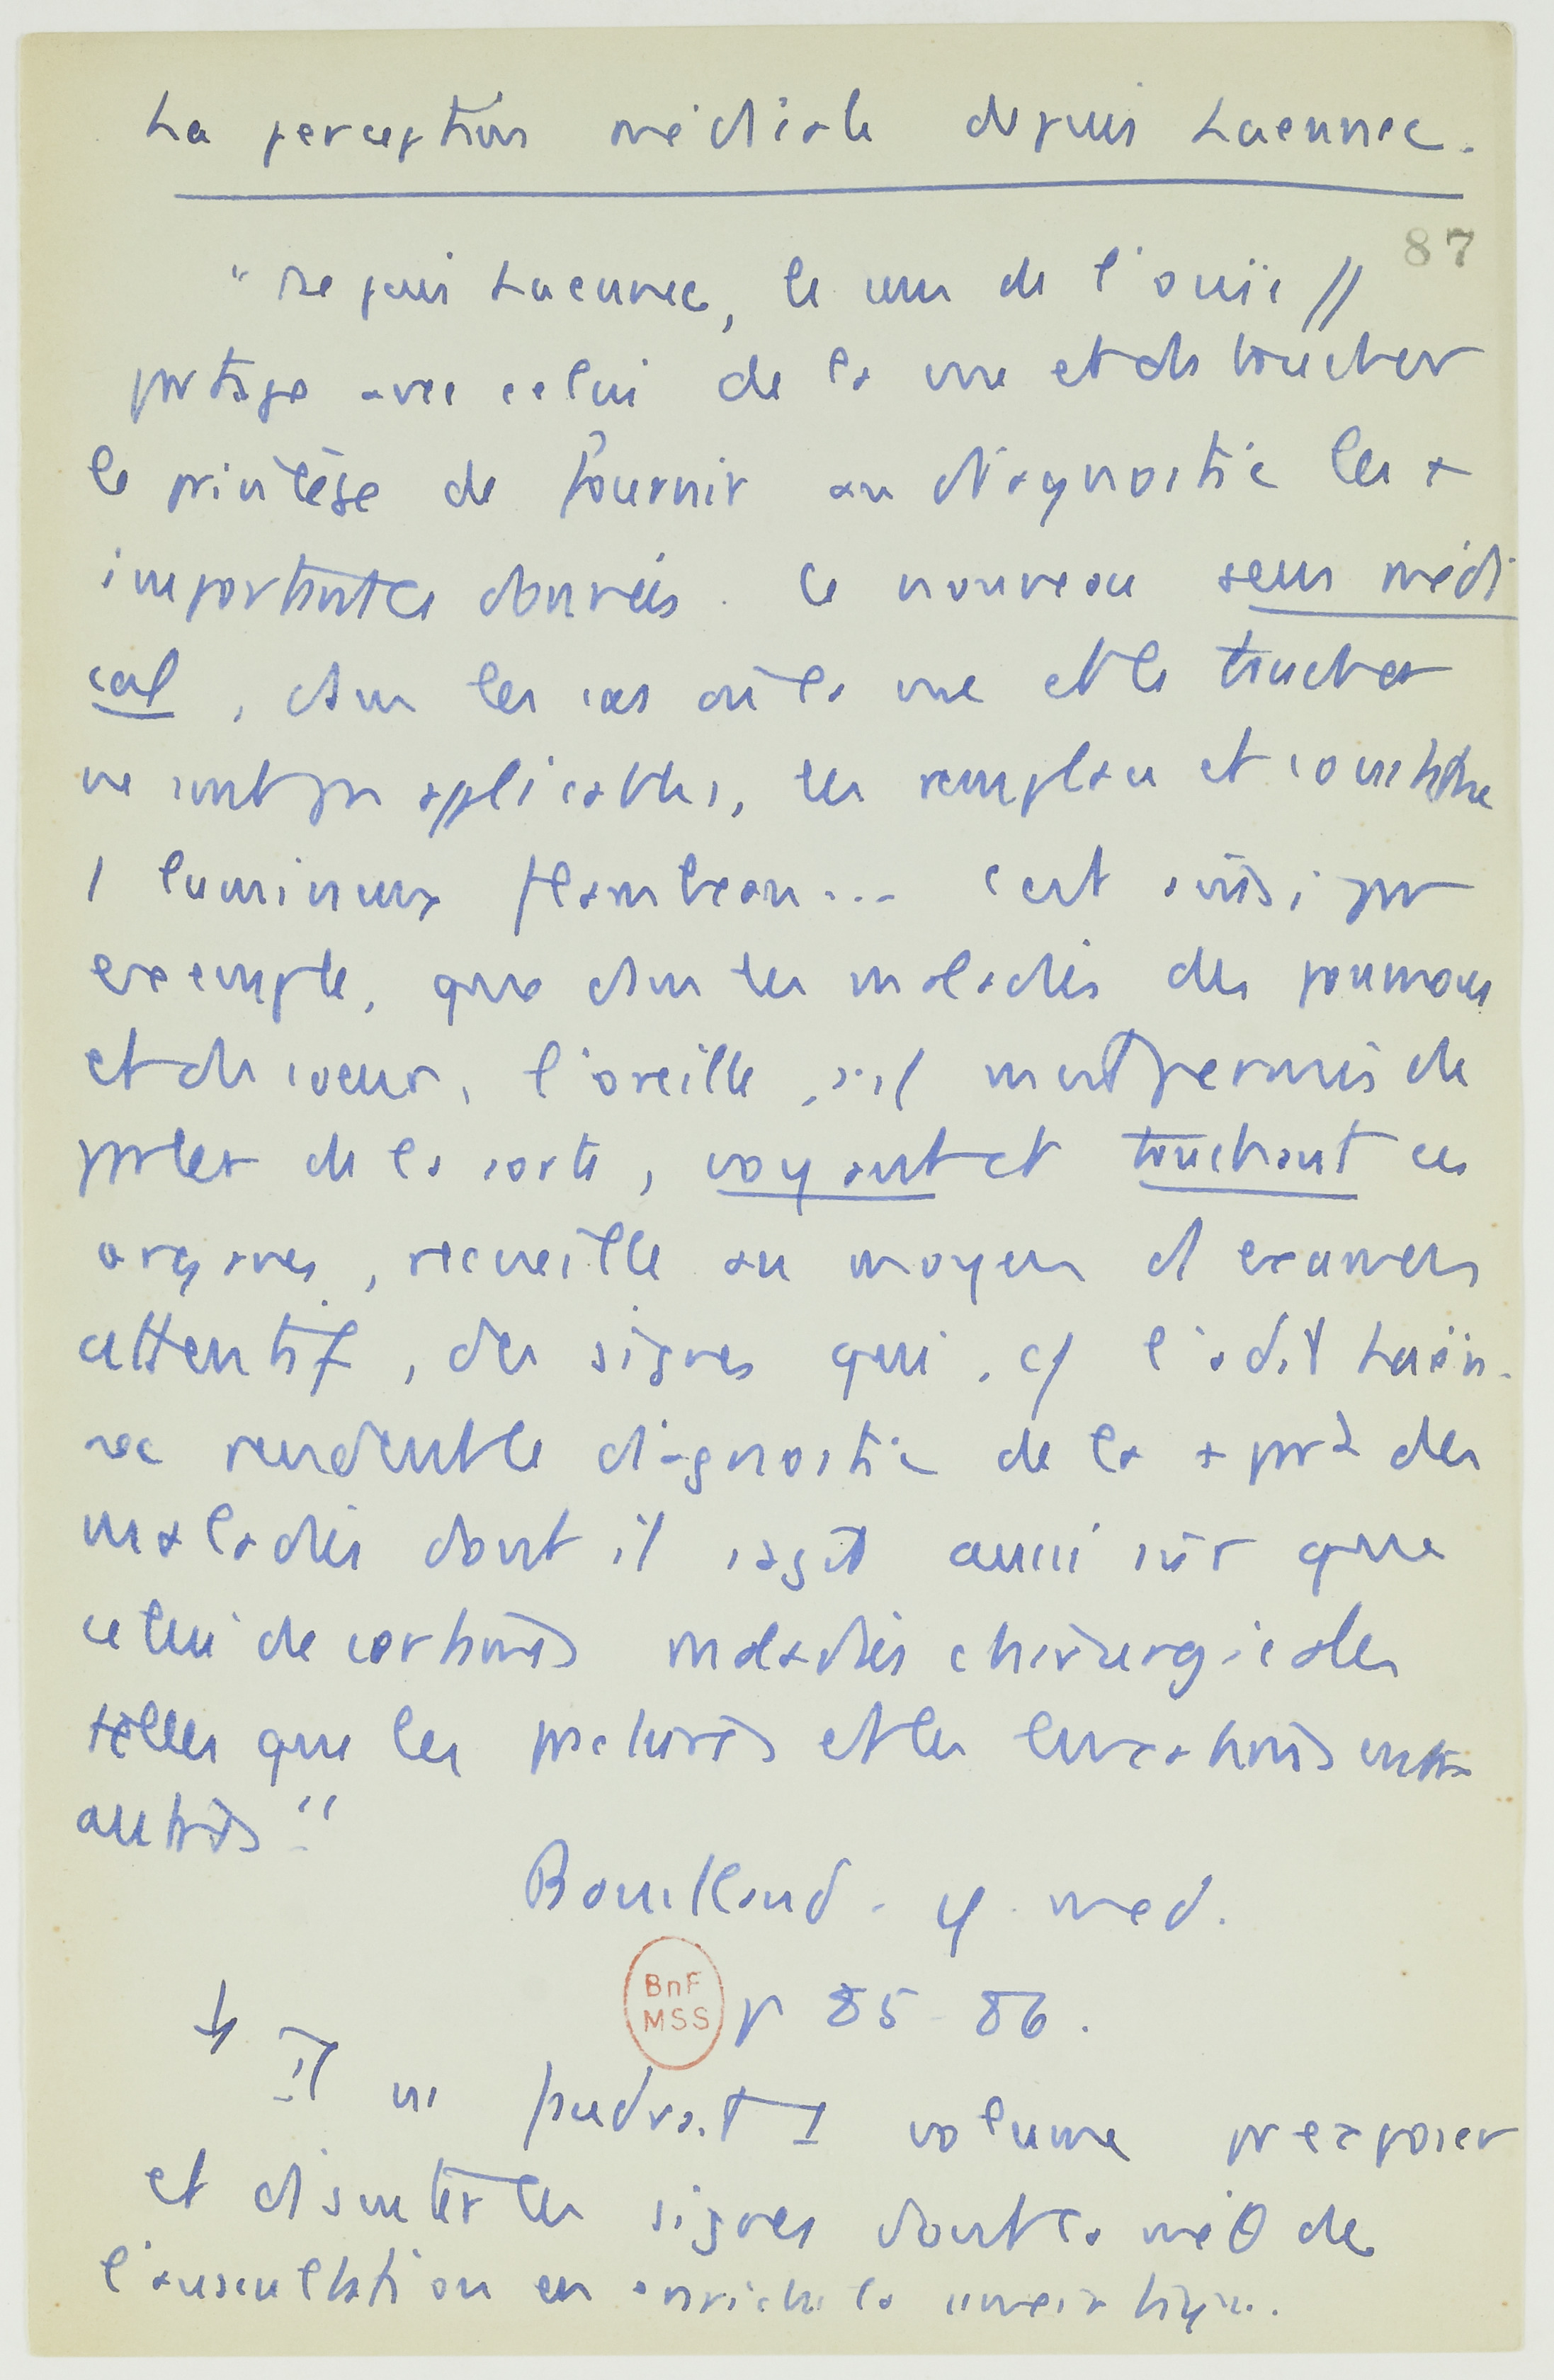 La perception médicale depuis Laennec.
87
"Depuis Laennec, le sens de l'ouïe //
partage avec celui de la vue et du toucher
le privilège de fournir au diagnostic les +
importantes données. Ce nouveau sens médi
cal, dans les cas où la vue et le toucher
ne sont pas applicables, les remplace et constitue
1 lumineux flambeau... C'est ainsi, par
exemple, que dans les maladies des poumons
et du coeur, l'oreille, s'il m'est permis de
parler de la sorte, voyant et touchant ces
organes, recueille au moyen d'examens
attentif, des signes qui, c/ l'a dit Laën-
nec rendent le diagnostic de la + part des
maladies dont il s'agit aussi sûr que
celui de certaines maladies chirurgicales
telles que les fractures et les luxations entre
autres"
Bouillaud. φ med.
BnF
MSS
p 85-86.
↓ Il ns faudrait 1 volume pr exposer
et discuter les signes dont la méθ de
l'auscultation en enrichi la